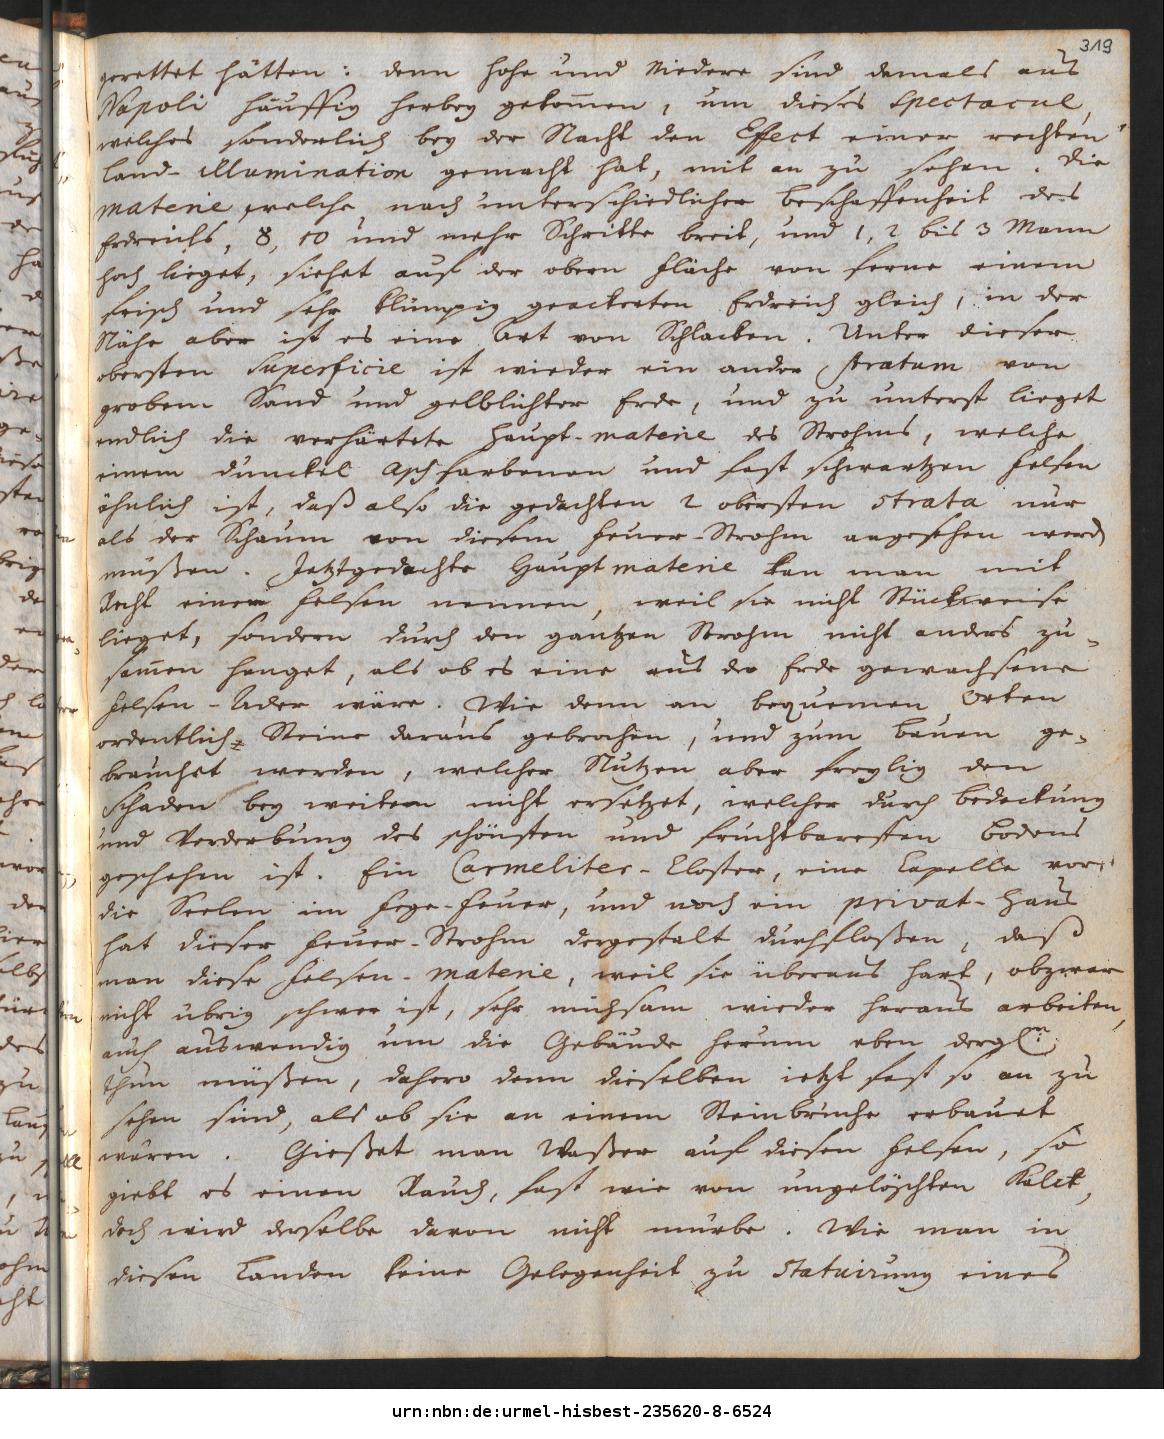 319
gerettet hätten: denn hohe und Niedere sind damals aus
Napoli häuffig herbey gekom̅en, um dieses Spectacul,
welches sonderlich bey der Nacht den Effect einer rechten
Land-illumination gemacht hat, mit an zu sehen. Die
materie, welche, nach unterschiedlicher Beschaffenheit des
Erdreichs, 8, 10 und mehr Schritte breit, und 1, 2 bis 3 Mann
hoch lieget, siehet auf der obern Fläche von ferne einem
frisch und sehr klümpig geackerten Erdreich gleich, in der
Nähe aber ist es eine Art von Schlacken. Unter dieser
obersten Superficie ist wieder ein ander Stratum von
grobem Sand und gelblichter Erde, und zu unterst lieget
endlich die verhärtete Haupt-materie des Strohms, welche
einem dunckel aschfarbenen und fast schwartzen Felsen
ähnlich ist, daß also die gedachten 2 obersten Strata nur
als der Schaum von diesem Feuer-Strohm angesehen werd
müßen. Jetztgedachte Hauptmaterie kan man mit
Recht einen Felsen nennen, weil sie nicht Stückweise
lieget, sondern durch den gantzen Strohm nicht anders zu-
sam̅en hanget, als ob es eine aus der Erde gewachsene
Felsen-Ader wäre. Wie denn an bequemen Orten
ordentliche Steine daraus gebrochen, und zum Bauen ge-
brauchet werden, welcher Nutzen aber freylig den
Schaden bey weitem nicht ersetzet, welcher durch Bedeckung
und Verderbung des schönsten und fruchtbaresten Bodens
geschehen ist. Ein Carmeliter-Closter, eine Capelle vor
die Seelen im Fege-Feuer, und noch ein privat-Haus
hat dieser Feuer-Strohm dergestalt durchfloßen, daß
man diese Felsen-materie, weil sie überaus hart, obzwar
nicht übrig schwer ist, sehr mühsam wieder heraus arbeiten,
auch auswendig um die Gebäude herum eben dergl.
thun müßen, dahero denn dieselben ietzt fast so an zu
sehen sind, als ob sie an einem Steinbruche erbauet
wären. Gießet man Waßer auf diesen Felsen, so
giebt es einen Rauch, fast wie von ungelöschten Kalck,
doch wird derselbe davon nicht mürbe. Wie man in
diesen Landen keine Gelegenheit zu Statuirung eines
urn:nbn:de:urmel-hisbest-235620-8-6524